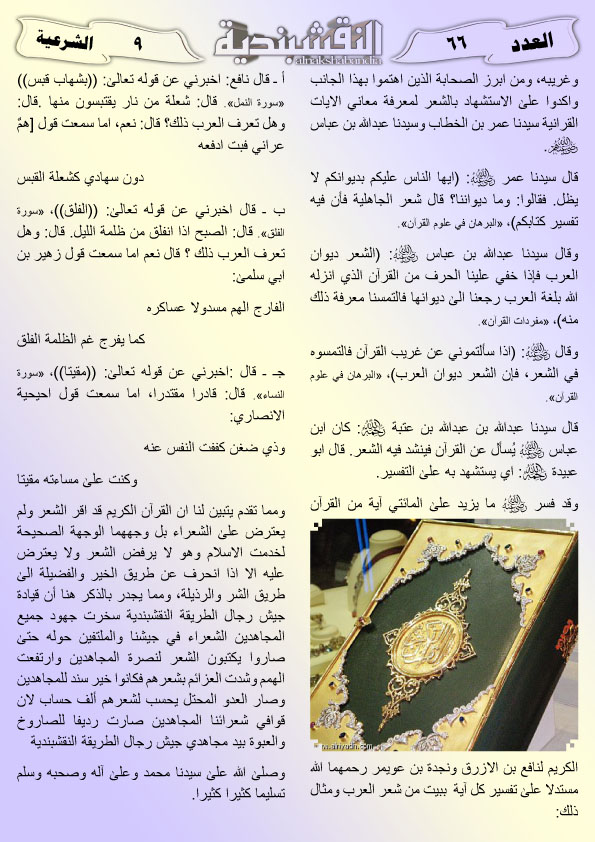 العدد
٦٦
النقشبندية
alnakshabandia
٩
الشرعية
وغريبه، ومن ابرز الصحابة الذين اهتموا بهذا الجانب
واكدوا على الاستشهاد بالشعر لمعرفة معاني الايات
القرانية سيدنا عمر بن الخطاب وسيدنا عبدالله بن عباس
.
قال سيدنا عمر : (ايها الناس عليكم بديوانكم لا
يظل. فقالوا: وما ديواننا؟ قال شعر الجاهلية فأن فيه
تفسير كتابكم)، «البرهان في علوم القرآن».
وقال سيدنا عبدالله بن عباس : (الشعر ديوان
العرب فإذا خفي علينا الحرف من القرآن الذي انزله
الله بلغة العرب رجعنا الى ديوانها فالتمسنا معرفة ذلك
منه)، «مفردات القرآن».
وقال : (اذا سألتموني عن غريب القرآن فالتمسوه
في الشعر، فإن الشعر ديوان العرب)، «البرهان في علوم
القرآن».
قال سيدنا عبدالله بن عبدالله بن عتبة : كان ابن
عباس يُسأل عن القرآن فينشد فيه الشعر. قال ابو
عبيدة : اي يستشهد به على التفسير.
وقد فسر ما يزيد على المائتي آية من القرآن
الكريم لنافع بن الازرق ونجدة بن عويمر رحمهما الله
مستدلا على تفسير كل آية ببيت من شعر العرب ومثال
ذلك:
أ ـ قال نافع: اخبرني عن قوله تعالى: ((بشهاب قبس))
«سورة النمل». قال: شعلة من نار يقتبسون منها .قال:
وهل تعرف العرب ذلك؟ قال: نعم، اما سمعت قول [همٌ
عراني فبت ادفعه
دون سهادي كشعلة القبس
ب ـ قال اخبرني عن قوله تعالى: ((الفلق))، «سورة
الفلق». قال: الصبح اذا انفلق من ظلمة الليل. قال: وهل
تعرف العرب ذلك ؟ قال نعم اما سمعت قول زهير بن
ابي سلمئ:
الفارج الهم مسدولا عساكره
كما يفرج غم الظلمة الفلق
جـ ـ قال :اخبرني عن قوله تعالى: ((مقيتا))، «سورة
النساء». قال: قادرا مقتدرا، اما سمعت قول احيحية
الانصاري:
وذي ضغن كففت النفس عنه
وكنت على مساءته مقيتا
ومما تقدم يتبين لنا ان القرآن الكريم قد اقر الشعر ولم
يعترض على الشعراء بل وجههما الوجهة الصحيحة
لخدمت الاسلام وهو لا يرفض الشعر ولا يعترض
عليه الا اذا انحرف عن طريق الخير والفضيلة الى
طريق الشر والرذيلة، ومما يجدر بالذكر هنا أن قيادة
جيش رجال الطريقة النقشبندية سخرت جهود جميع
المجاهدين الشعراء في جيشنا والملتفين حوله حتى
صاروا يكتبون الشعر لنصرة المجاهدين وارتفعت
الهمم وشدت العزائم بشعرهم فكانوا خير سند للمجاهدين
وصار العدو المحتل يحسب لشعرهم ألف حساب لان
قوافي شعرائنا المجاهدين صارت رديفا للصاروخ
والعبوة بيد مجاهدي جيش رجال الطريقة النقشبندية
وصلىٰ الله على سيدنا محمد وعلى آله وصحبه وسلم
تسليما كثيرا كثيرا.